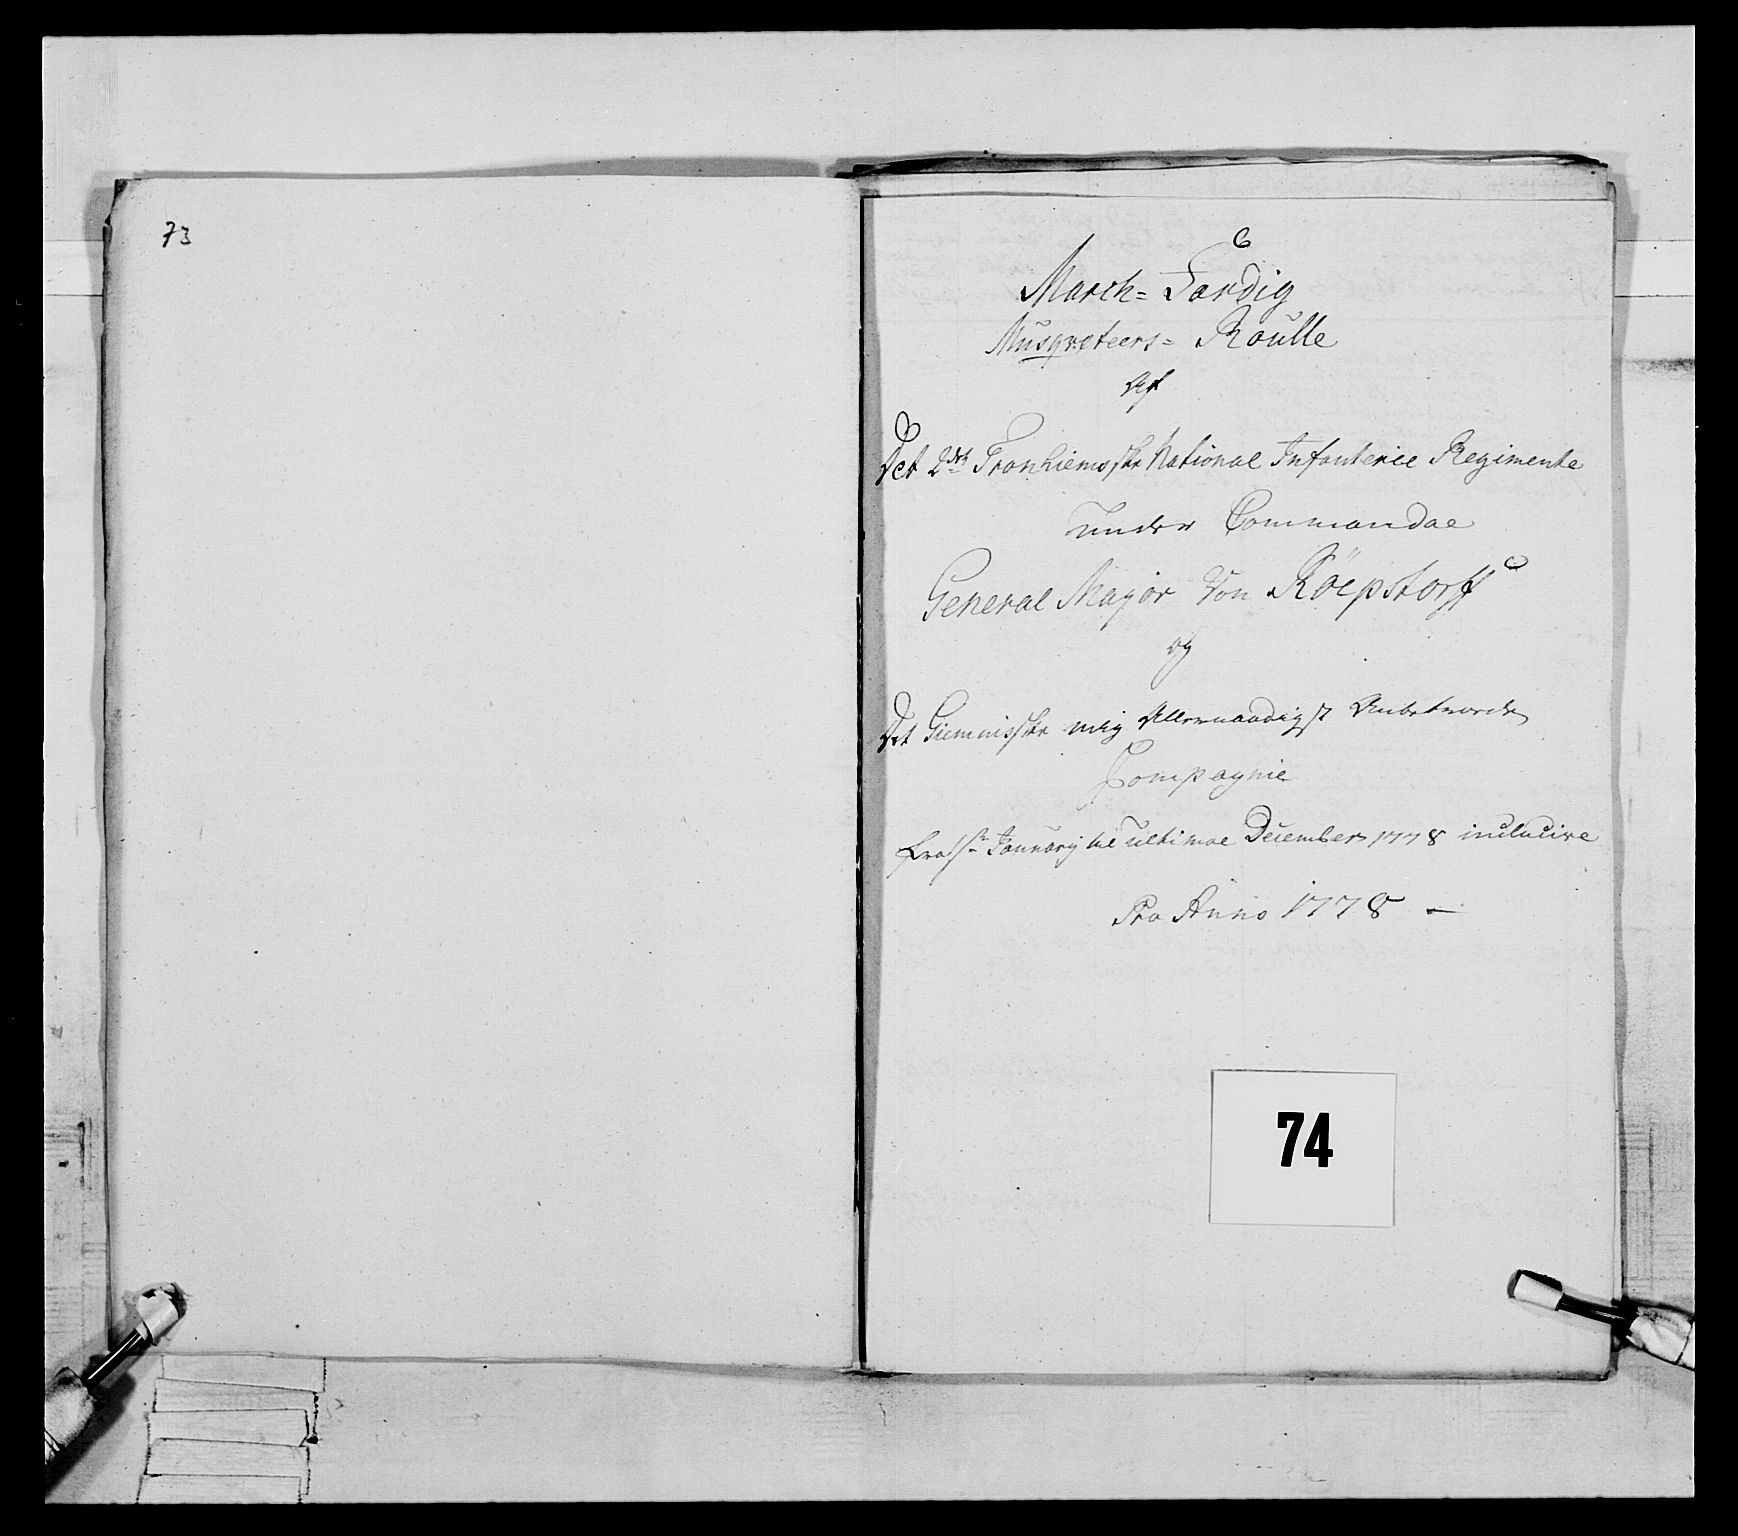 73
March= Færdig
Musqveteers= Roulle
Af
Det 2det Tronhiemsske National Infanterie Regimente
under Commandae
General Major Von Röepstorff
og
Det Giemnisske mig Allernaadigst Anbetroede
Compagnie
fra 1ste January til ultimae December 1778 inclucive
Pro Anno 1778 —
74